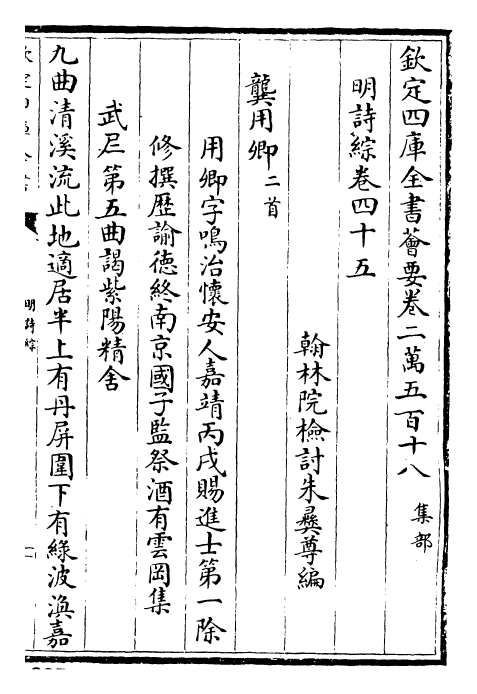 欽定四庫全書薈要卷二萬五百十八 集部
明詩綜卷四十五
翰林院檢討朱彞尊編
龔用卿二首
用卿字鳴治懷安人嘉靖丙戌賜進士第一除
修撰歴諭德終南京國子監祭酒有雲岡集
武𡰥第五曲謁紫陽精舍
九曲清溪流此地適居半上有丹屏圍下有緑波渙嘉
明詩綜